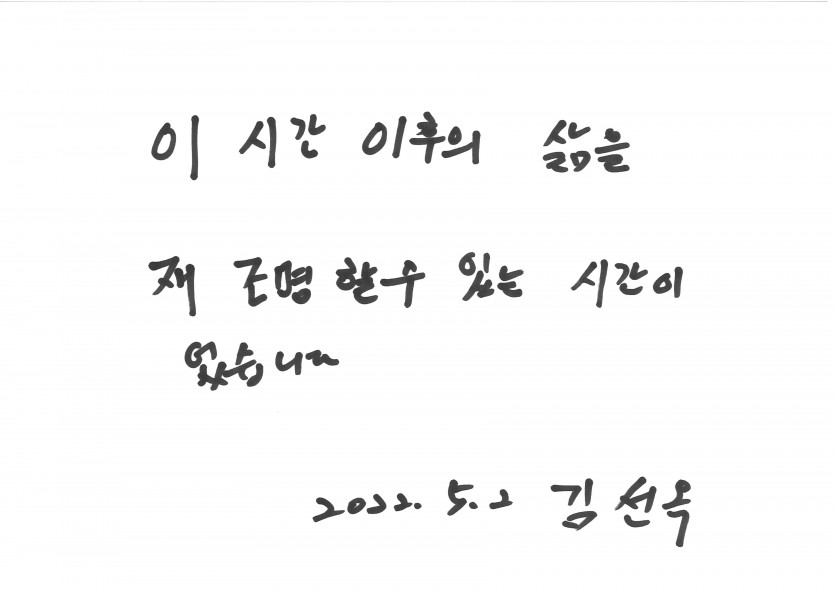 이 시간 이후의 삶을
재 조명 할수 있는 시간이
었습니다
2022. 5. 2 김선옥